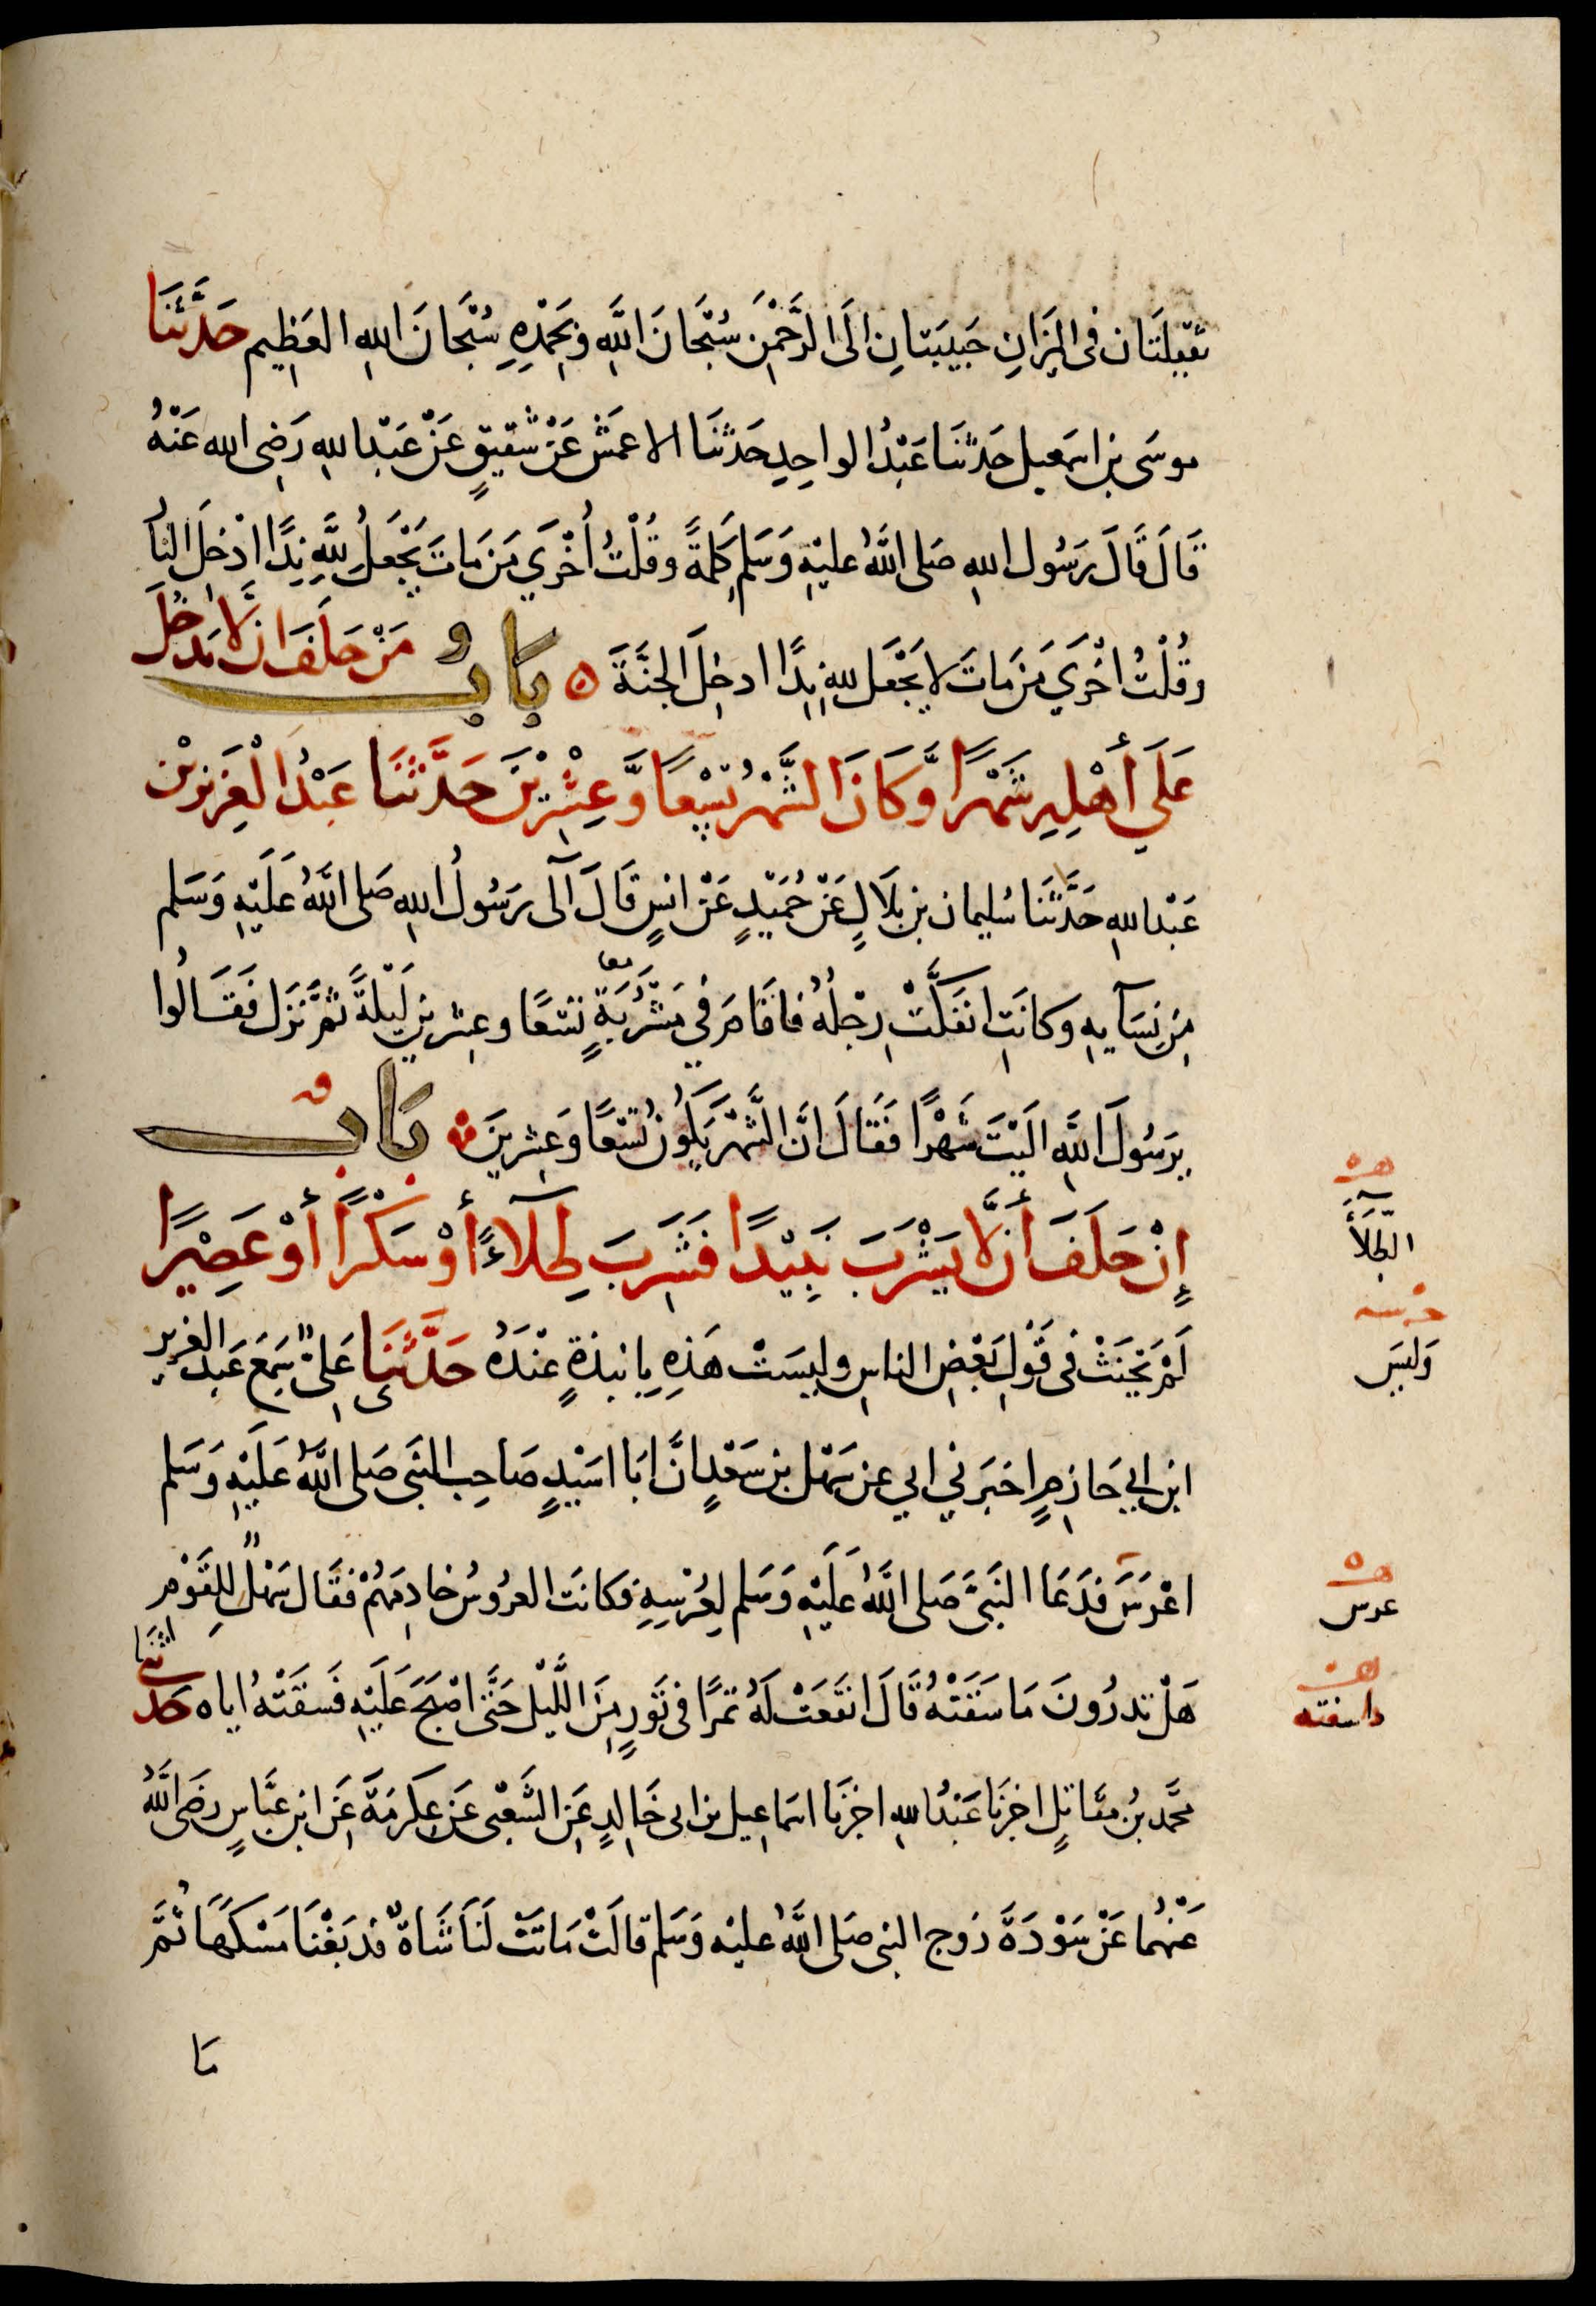 ثَقِيلَتَان فى الِيزَانِ حَبِيبَتانِ الَى الرَّحْمٰنِ سُبْحَانَ اللَّهِ وَبِحَمْدِهِ سُبْحَانَ اللهِ العَظِيم حَدَّثَنَا
موسَى بن اسمَعيل حَدثنَا عَبْدُ الواحِدِ حَدثنَا الاعمَش عَنْ شَقيقٍ عَنْ عَبْد اللهِ رَضِى الله عَنْهُ
قَالَ قَالَ رَسُول اللهِ صَلى اللَّهُ عليْهِ وَسَلم كَلِمَةً وقُلْتُ اُخْرَي مَن مَاتَ يَجْعَلُ لِلَّهِ نِدًّا اُدْخِلَ النار
وقُلْتُ اخْرَي مَن مَاتَ لا يَجْعَل للهِ نِدًّا ادخِلَ الجنَّةَ ه بَابٌ مَنْ حَلَفَ ان لَّا يَدْخُلَ
عَلَي أَهْلِهِ شَهْرًا وَّكَانَ الشَّهْرُ تِسْعًا وَّعِشْرِيْنَ حَدَّثنَا عَبْدُ الْعَزِيزبْن
عَبْد اللهِ حَدَّثنَا سُليمان بن بِلَالٍ عَنْ حُمَيْدٍ عَنْ انسٍ قَالَ آلَى رَسُولُ اللهِ صَلى اللَّهُ عَلَيْهِ وَسَلم
مِن نِسَآيهِ وكانَتِ انفَكَّتْ رِجْلُهُ فاقَامَ فِي مَشْرُبَةٍ تسْعًا وعِشرينَ لَيْلَةً ثُمَّ نَزَل فَقَالُوا
يرَسُولَ اللَّهِ الَيْتَ شَهْرًا فَقَالَ انَّ الشَّهْرَ يَكُونُ تسْعًا وَعِشرينَ بَاب
إِنْ حَلَفَ أَن لَّا يَشْرَبَ نَبِيْذًا فَشَرِبَ طِلَآءً أَوْ سَكَرًا أَوْ عَصِيْرًا
لَمْ يَحْنَثْ فى قَوْلِ بَعْضِ الناسِ وليسَتْ هَذِهِ بِانبذةٍ عنْدَهُ حَدَّثَنِى عَلِىٌّ سَمِعَ عَبدَ العَزيز
ابن ابِي حَازِمٍ اخبَرَنِي ابي عن سَهْل بن سَعْدٍ انَّ ابَا اسَيْدٍ صَاحِب النبَى صَلى اللَّهُ عَلَيْهِ وَسَلم
اعْرَسَ فدَعَا النَبىَّ صَلى اللَّهُ عَلَيْهِ وَسَلم لِعُرْسِهِ فكانَت العرُوسُ خادِمَهُمْ فقَال سَهْلٌ لِلقَوْمِ
هَلْ تدرُونَ مَا سَقَتْهُ قَالَ انقَعَتْ لَهُ تمرًا فى تَورٍ مِنَ اللَّيْل حَتَّى اصْبَحَ عَلَيْهِ فَسقَتْهُ اياه حَدثنا
محَمد بنُ مقَاتلٍ اخبرَنا عَبْدُ اللهِ اخبرَنا اسمَاعِيل بن ابى خَالدٍ عَنِ الشَّعْبى عَن عِكرمَةَ عَنِ ابن عبَّاسٍ رضَى اللَّهُ
عَنْهُما عَنْ سَوْدَةَ زَوج النبى صَلى اللَّهُ عليْه وَسَلم قالَتْ مَاتَتْ لَنَا شَاةٌ فدَبَغْنَا مَسْكَهَا ثُمَّ
مَا
الطِّلَآ
وَليسَ
عرس